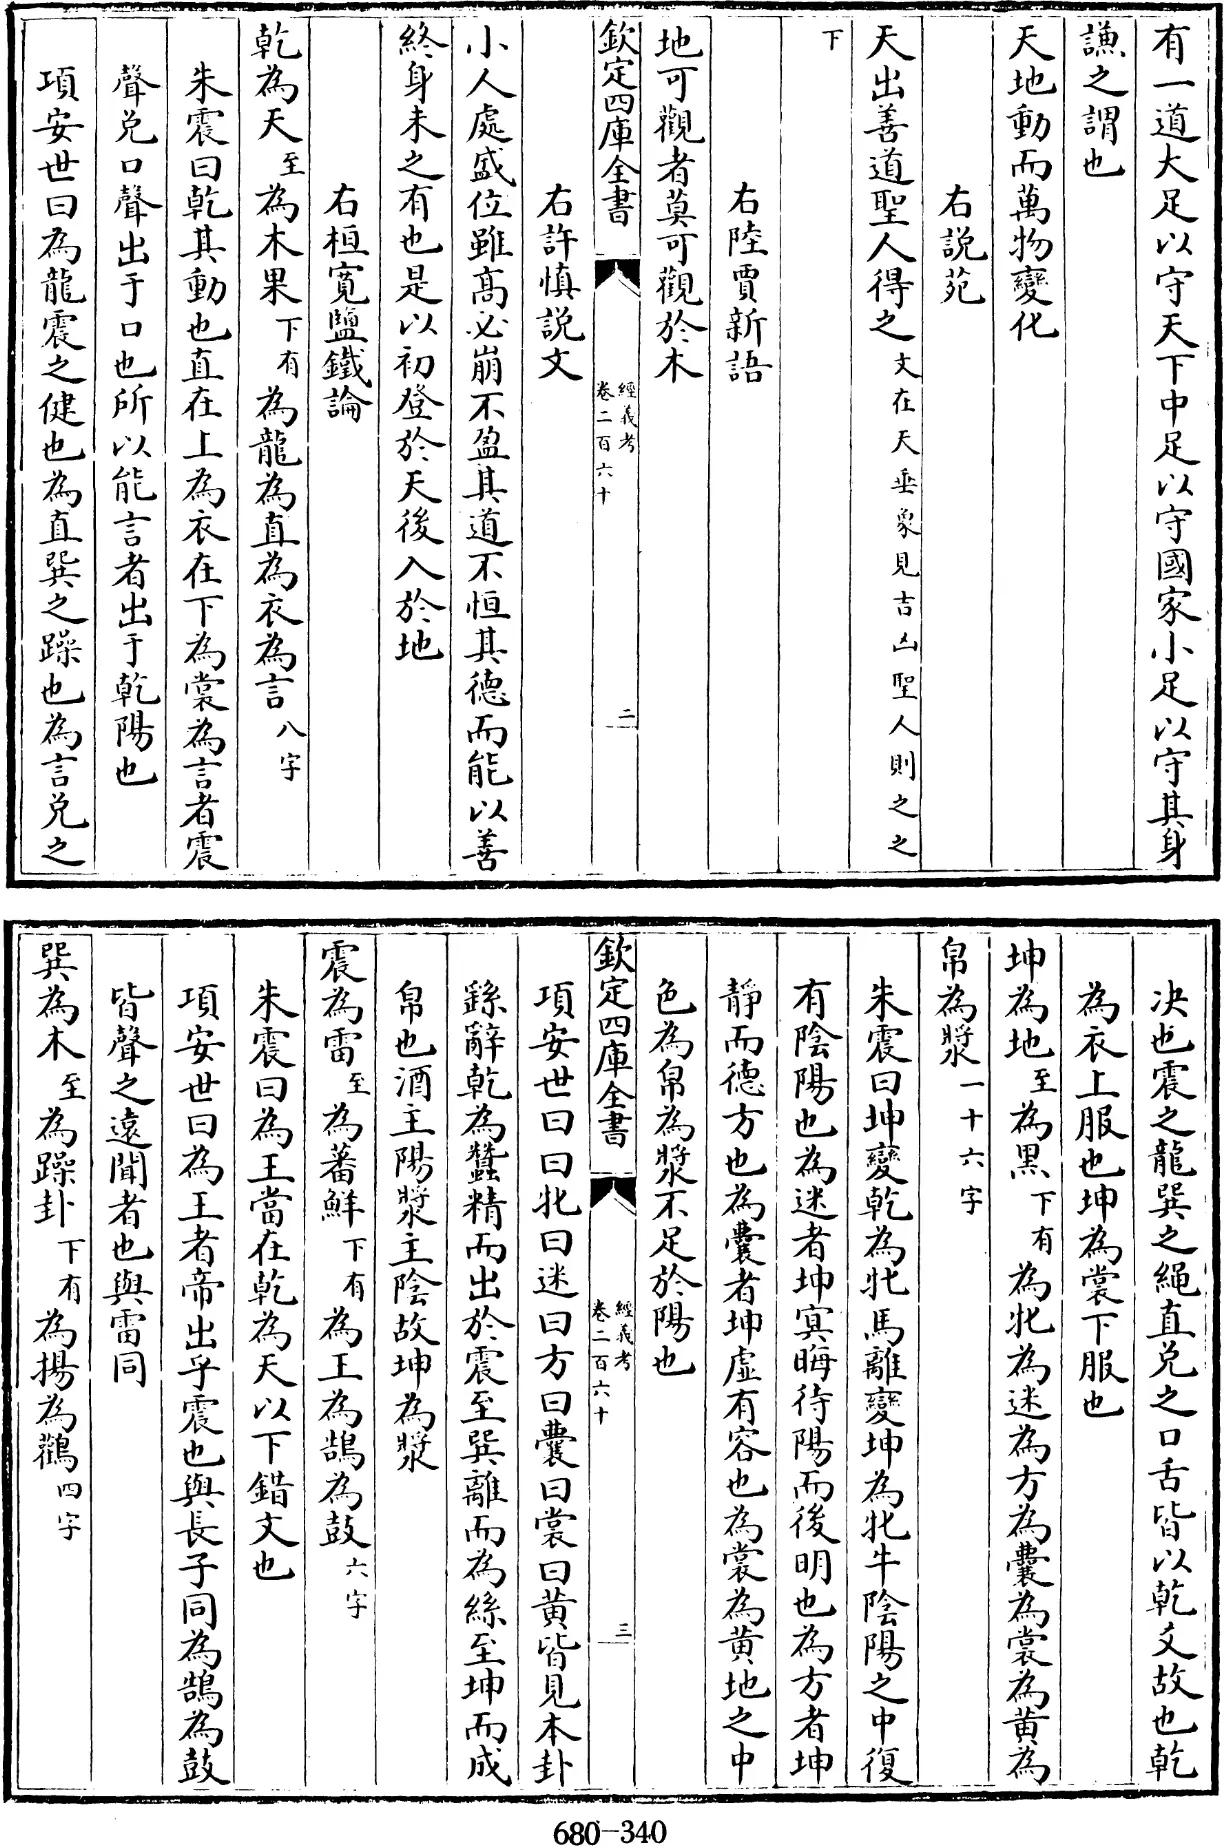 有一道大足以守天下中足以守國家小足以守其身
謙之謂也
天地動而萬物變化
右説苑
天出善道聖人得之文在天垂象見吉凶聖人則之之
下
右陸賈新語
地可觀者莫可觀於木
欽定四庫全書
經義考
卷二百六十
二
右許慎説文
小人處盛位雖高必崩不盈其道不恒其德而能以善
終身未之有也是以初登於天後入於地
右桓寛鹽鐵論
乾為天至為木果下有為龍為直為衣為言八字
朱震曰乾其動也直在上為衣在下為裳為言者震
聲兑口聲出于口也所以能言者出于乾陽也
項安世曰為龍震之健也為直巽之躁也為言兑之
决也震之龍巽之繩直兑之口舌皆以乾爻故也乾
為衣上服也坤為裳下服也
坤為地至為黑下有為牝為迷為方為囊為裳為黄為
帛為漿一十六字
朱震曰坤變乾為牝馬離變坤為牝牛陰陽之中復
有陰陽也為迷者坤冥晦待陽而後明也為方者坤
靜而德方也為囊者坤虛有容也為裳為黄地之中
色為帛為漿不足於陽也
欽定四庫全書
經義考
卷二百六十
三
項安世曰曰牝曰迷曰方曰囊曰裳曰黄皆見本卦
繇辭乾為蠶精而出於震至巽離而為絲至坤而成
帛也酒主陽漿主陰故坤為漿
震為雷至為蕃鮮下有為王為鵠為鼓六字
朱震曰為王當在乾為天以下錯文也
項安世曰為王者帝出乎震也與長子同為鵠為鼓
皆聲之遠聞者也與雷同
巽為木至為躁卦下有為揚為鸛四字
680-340